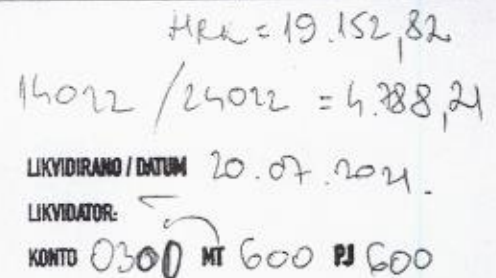 HRK = 19.152,82
14022 / 24022 = 4.788,21
LIKVIDIRANO / DATUM 20.07.2021.
LIKVIDATOR:
KONTO 0300 MT 600 PJ 600